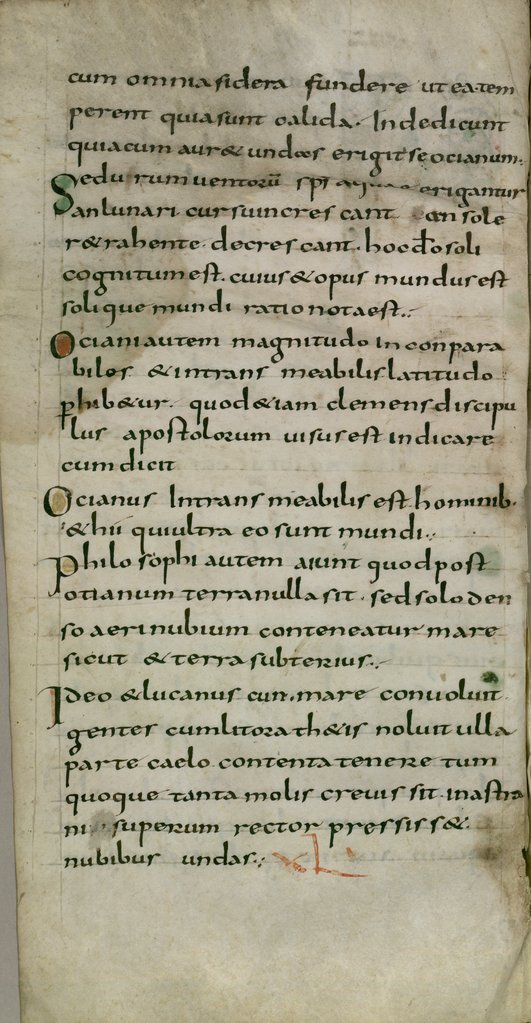 cum omnia sidera fundere ut ea tem
perent quia sunt calida. Inde dicunt
quia cum aur& undas erigit se ocianum.
Sed utrum ventorū sps erigantur
an lunari cursu increscant an sole
r&rahente. decrescant. hoc dō soli
cognitum est. cuius & opus mundus est
solique mundi ratio nota est.
Ociani autem magnitudo in conpara
biles & intransmeabilis latitudo
phib&ur. quod &iam clemens discipu
lus apostolorum visus est indicare
cum dicit
Ocianus Intransmeabilis est hominib.
& hii qui ultra eo sunt mundi.
Philosophi autem aiunt quod post
otianum terra nulla sit. sed solo den
so aeri nubium conteneatur mare
sicut & terra subterius.
Ideo & lucanus cum. mare convoluit
gentes cum litora th&is noluit ulla
parte caelo contenta tenere tum
quoque tanta molis crevissit. in astra
ni superum rector pressiss&.
nubibus undas.